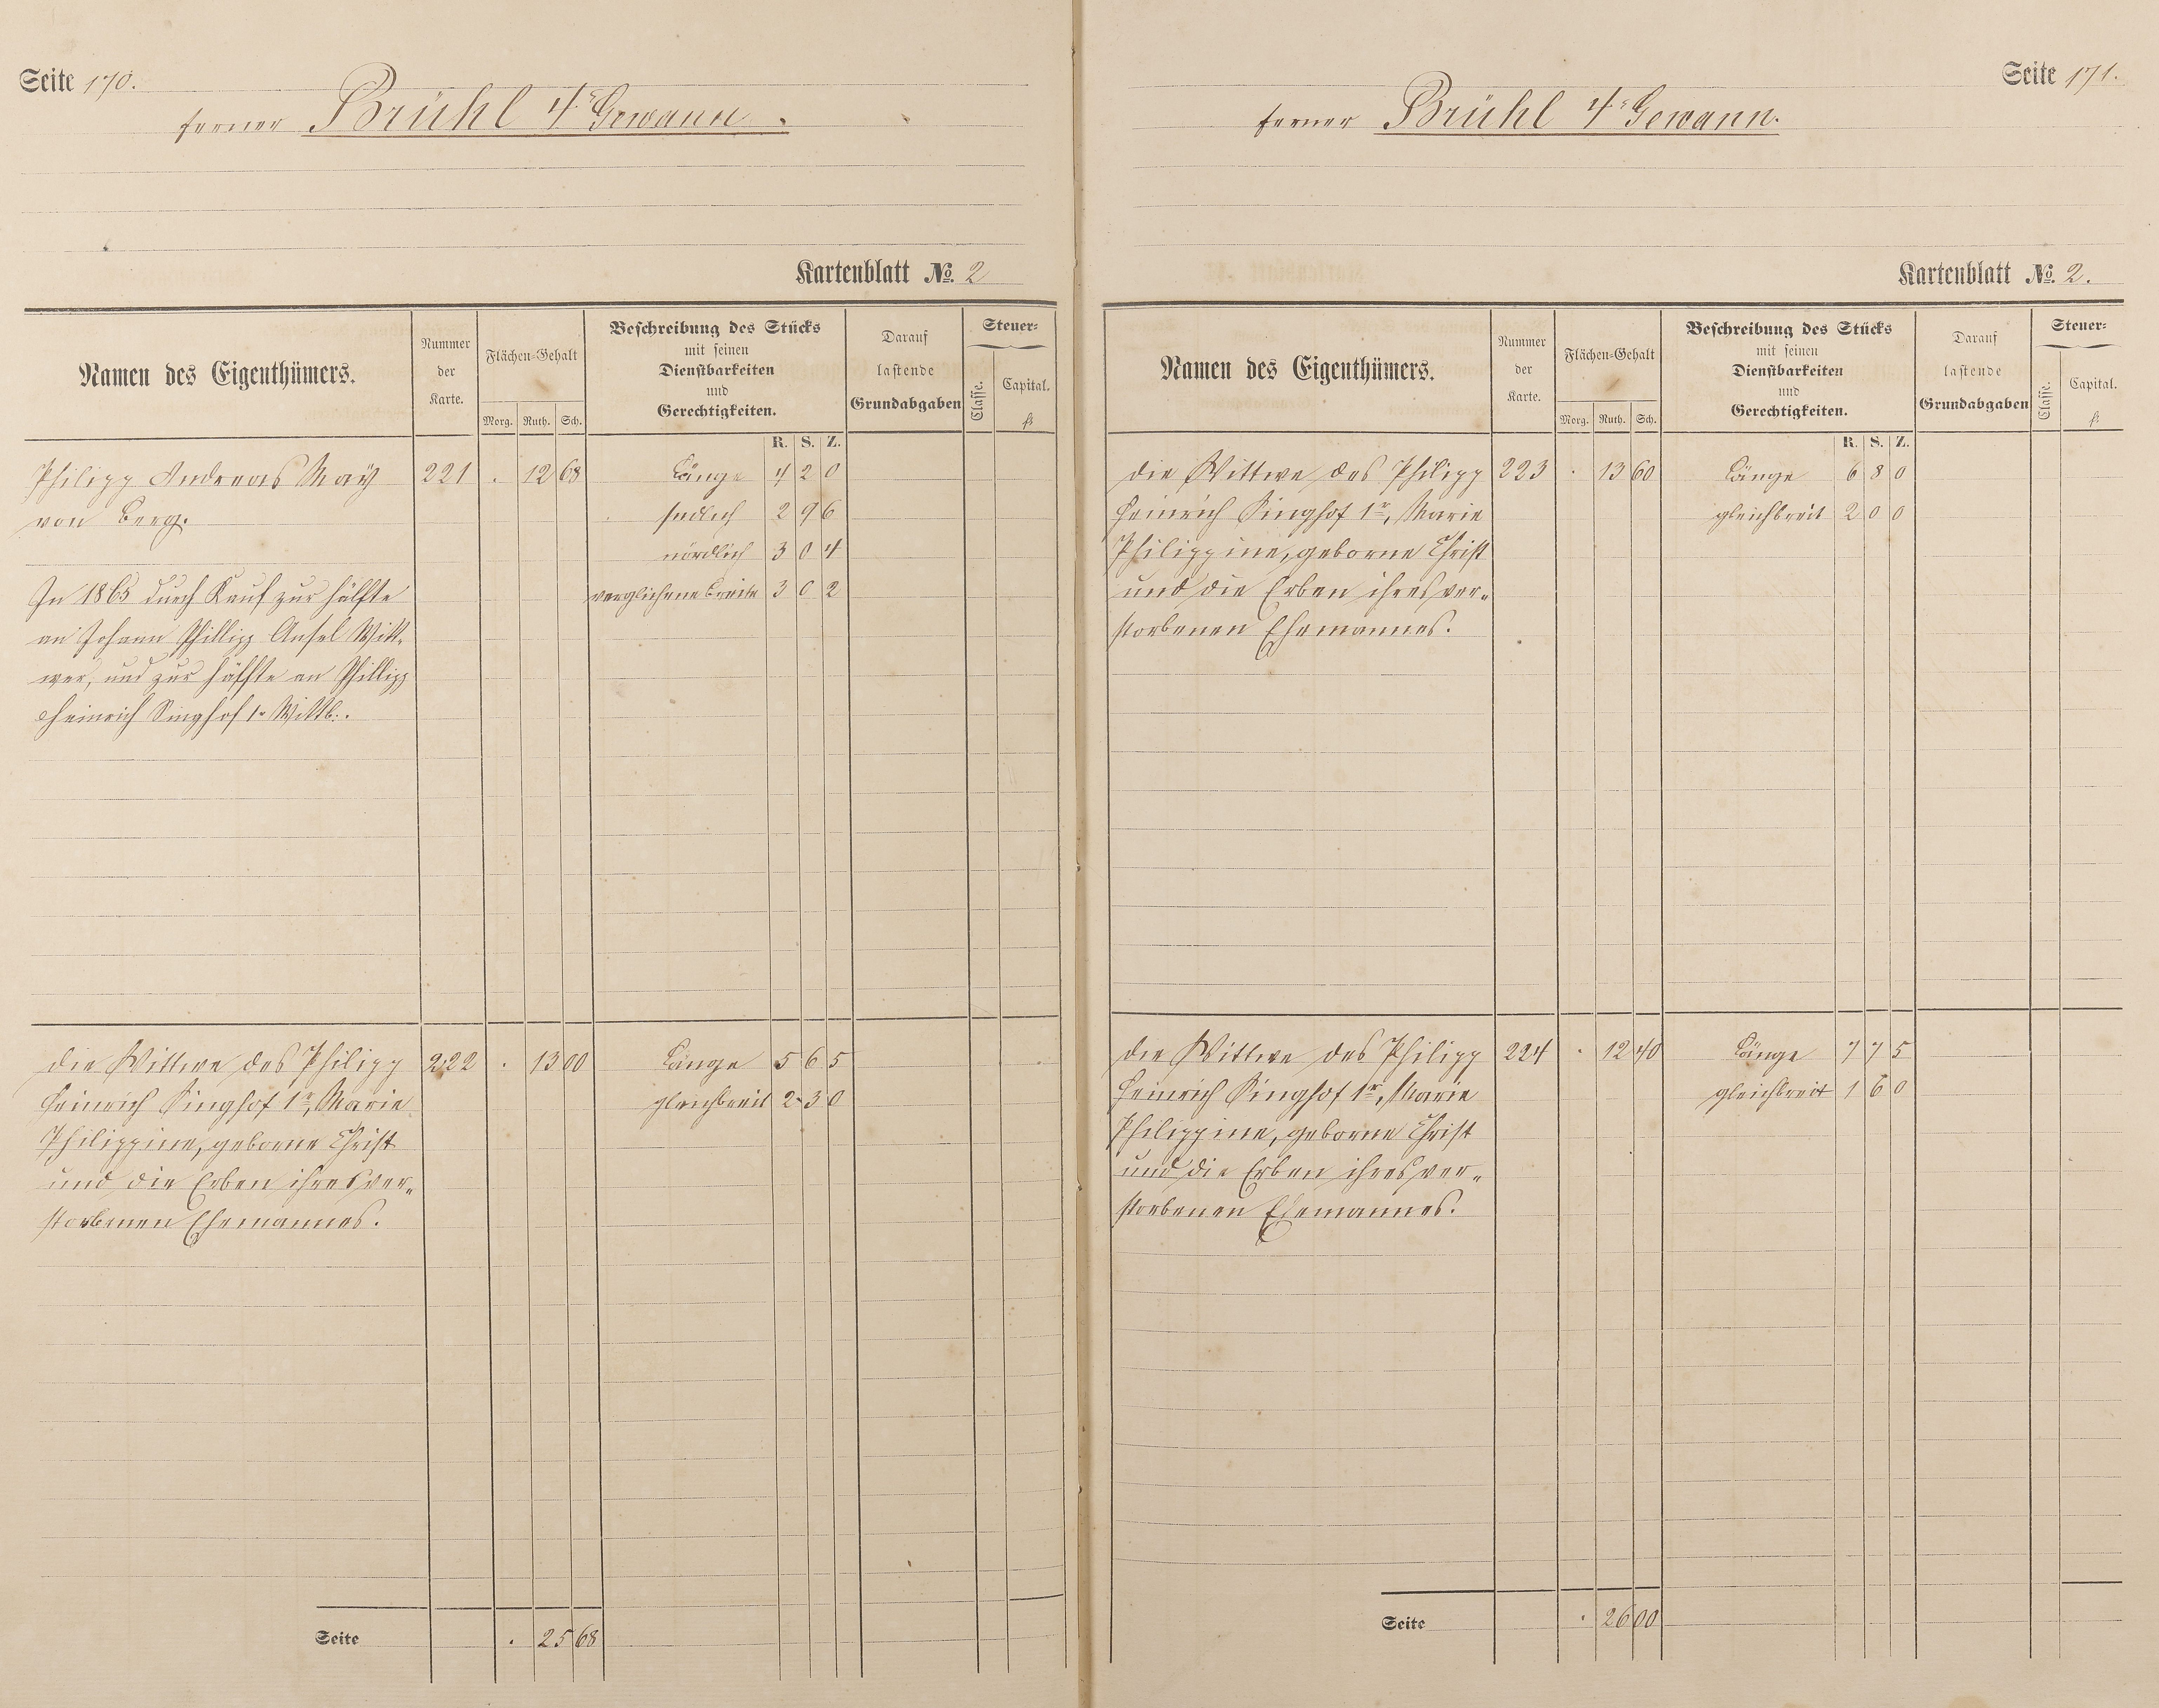 Seite 170.
ferner Brühl 4r Gewann.
Kartenblatt No. 2
Namen des Eigenthümers.
Nummer der Karte.
Flächen-Gehalt
Morg. Ruth. Sch.
Beschreibung des Stücks
mit seinen
Dienstbarkeiten
und
Gerechtigkeiten.
Darauf
lastende
Grundabgaben
Steuer-
Classe.
Capital.
fl.
R. S. Z.
Philipp Andreas Maÿ 221 . 12 68 Länge 4 2 0
von Berg. südlich 2 9 6
nördlich 3 0 4
In 1865 durch Kauf zur Hälfte verglichene Breite 3 0 2
an Johann Phillipp Ansel Witt-
wer, und zur Hälfte an Phillipp
Heinrich Singhof 1r Wittb.
Die Wittwe des Philipp 222 . 13 00 Länge 5 6 5
Heinrich Singhof 1r, Marie gleichbreit 2 3 0
Philippine, geborne Christ
und die Erben ihres ver-
storbenen Ehemannes.
Seite . 25 68
Seite 171.
ferner Brühl 4r Gewann.
Kartenblatt No. 2.
Namen des Eigenthümers.
Nummer der Karte.
Flächen-Gehalt
Morg. Ruth. Sch.
Beschreibung des Stücks
mit seinen
Dienstbarkeiten
und
Gerechtigkeiten.
Darauf
lastende
Grundabgaben
Steuer-
Classe.
Capital.
fl.
R. S. Z.
Die Wittwe des Philipp 223 . 13 60 Länge 6 8 0
Heinrich Singhof 1r, Marie gleichbreit 2 0 0
Philippine, geborne Christ
und die Erben ihres ver-
storbenen Ehemannes.
Die Wittwe des Philipp 224 . 12 40 Länge 7 7 5
Heinrich Singhof 1r, Marie gleichbreit 1 6 0
Philippine, geborne Christ
und die Erben ihres ver-
storbenen Ehemannes.
Seite . 26 00